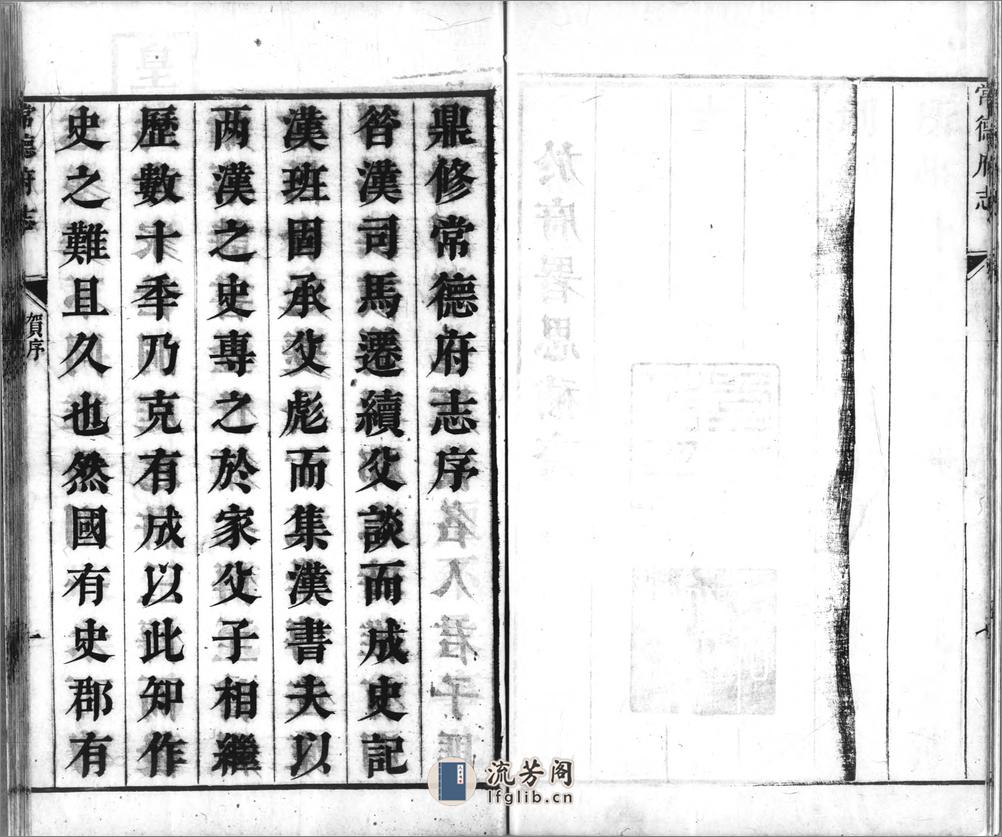 常德府志
鼎修常德府志序
昝漢司馬遷續父談而成史記
漢班固承父彪而集漢書夫以
兩漢之史專之於家父子相繼
歷數十季乃克有成以此知作
史之難且久也然國有史郡有
常德府志
賀序
一
流芳阁
lfglib.cn